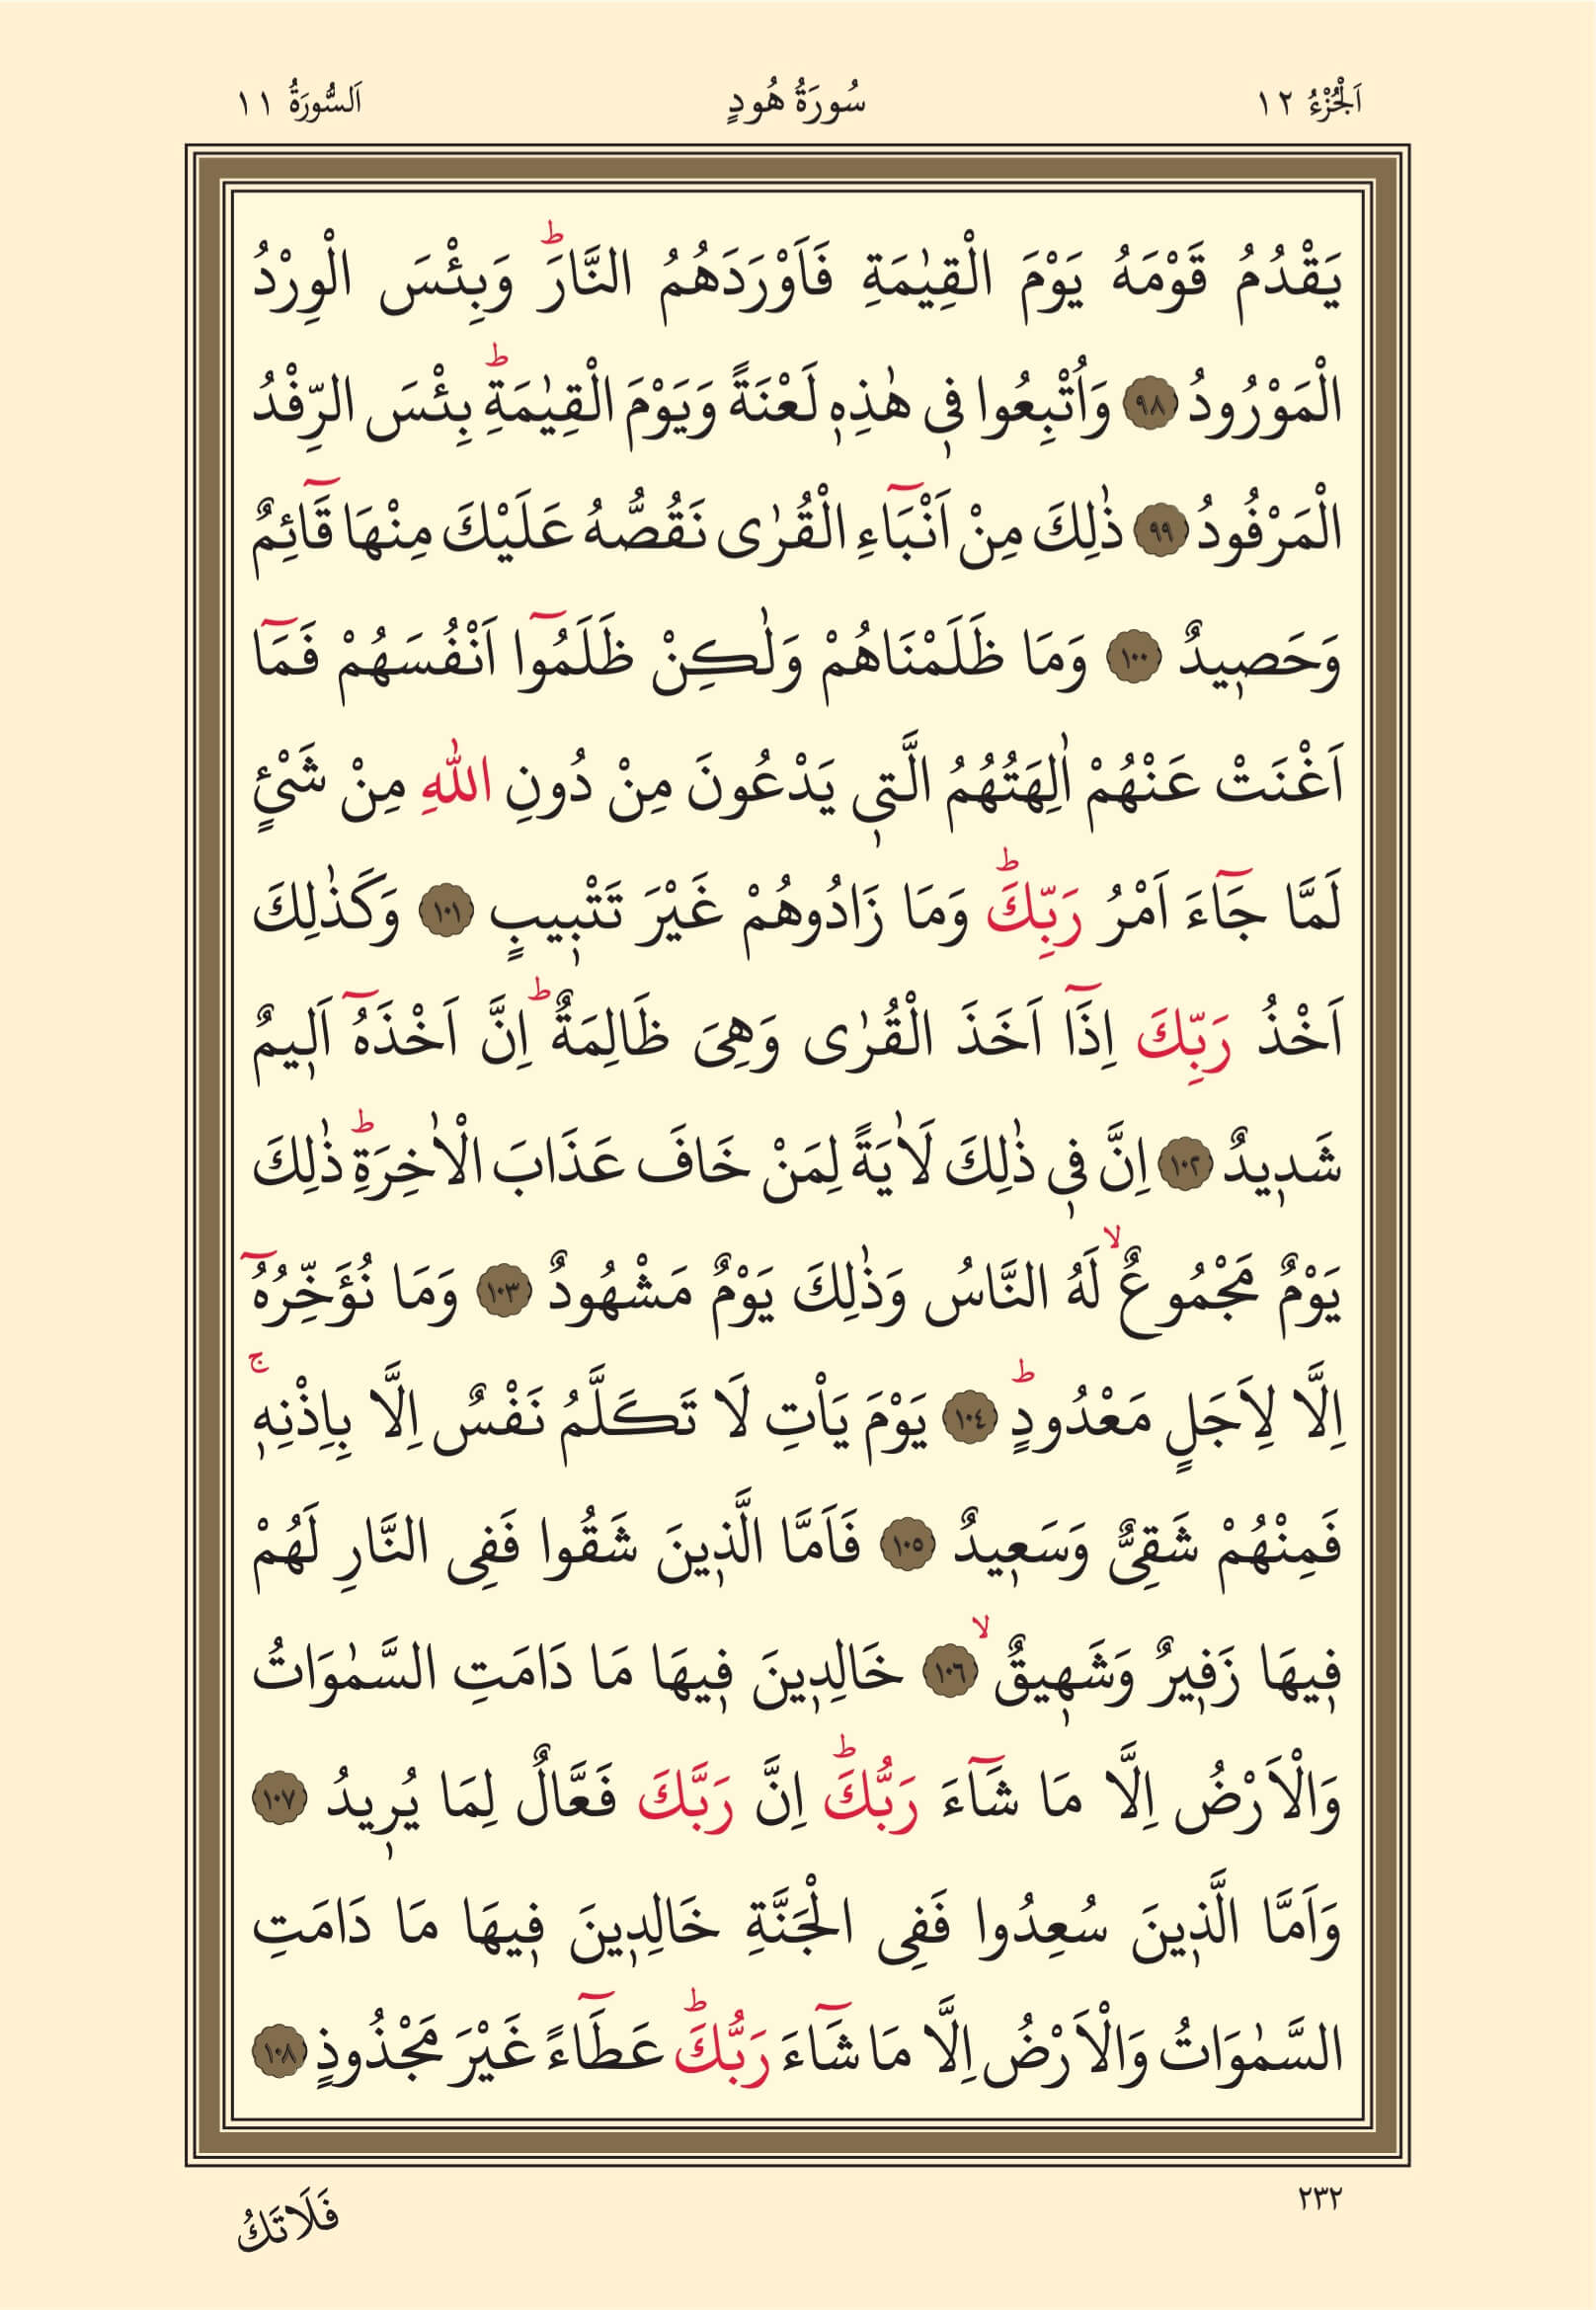 اَلْجُزْءُ ١٢ سُورَةُ هُودٍ اَلسُّورَةُ ١١
يَقْدُمُ قَوْمَهُ يَوْمَ الْقِيٰمَةِ فَاَوْرَدَهُمُ النَّارَۜ وَبِئْسَ الْوِرْدُ
الْمَوْرُودُ ﴿٩٨﴾ وَاُتْبِعُوا ف۪ي هٰذِه۪ لَعْنَةً وَيَوْمَ الْقِيٰمَةِۜ بِئْسَ الرِّفْدُ
الْمَرْفُودُ ﴿٩٩﴾ ذٰلِكَ مِنْ اَنْبَٓاءِ الْقُرٰى نَقُصُّهُ عَلَيْكَ مِنْهَا قَٓائِمٌ
وَحَص۪يدٌ ﴿١٠٠﴾ وَمَا ظَلَمْنَاهُمْ وَلٰكِنْ ظَلَمُٓوا اَنْفُسَهُمْ فَمَٓا
اَغْنَتْ عَنْهُمْ اٰلِهَتُهُمُ الَّت۪ي يَدْعُونَ مِنْ دُونِ اللّٰهِ مِنْ شَيْئٍ
لَمَّا جَٓاءَ اَمْرُ رَبِّكَۜ وَمَا زَادُوهُمْ غَيْرَ تَتْب۪يبٍ ﴿١٠١﴾ وَكَذٰلِكَ
اَخْذُ رَبِّكَ اِذَٓا اَخَذَ الْقُرٰى وَهِيَ ظَالِمَةٌۜ اِنَّ اَخْذَهُٓ اَل۪يمٌ
شَد۪يدٌ ﴿١٠٢﴾ اِنَّ ف۪ي ذٰلِكَ لَاٰيَةً لِمَنْ خَافَ عَذَابَ الْاٰخِرَةِۜ ذٰلِكَ
يَوْمٌ مَجْمُوعٌۙ لَهُ النَّاسُ وَذٰلِكَ يَوْمٌ مَشْهُودٌ ﴿١٠٣﴾ وَمَا نُؤَخِّرُهُٓ
اِلَّا لِاَجَلٍ مَعْدُودٍۜ ﴿١٠٤﴾ يَوْمَ يَأْتِ لَا تَكَلَّمُ نَفْسٌ اِلَّا بِاِذْنِه۪ۚ
فَمِنْهُمْ شَقِيٌّ وَسَع۪يدٌ ﴿١٠٥﴾ فَاَمَّا الَّذ۪ينَ شَقُوا فَفِي النَّارِ لَهُمْ
ف۪يهَا زَف۪يرٌ وَشَه۪يقٌۙ ﴿١٠٦﴾ خَالِد۪ينَ ف۪يهَا مَا دَامَتِ السَّمٰوَاتُ
وَالْاَرْضُ اِلَّا مَا شَٓاءَ رَبُّكَۜ اِنَّ رَبَّكَ فَعَّالٌ لِمَا يُر۪يدُ ﴿١٠٧﴾
وَاَمَّا الَّذ۪ينَ سُعِدُوا فَفِي الْجَنَّةِ خَالِد۪ينَ ف۪يهَا مَا دَامَتِ
السَّمٰوَاتُ وَالْاَرْضُ اِلَّا مَا شَٓاءَ رَبُّكَۜ عَطَٓاءً غَيْرَ مَجْذُوذٍ ﴿١٠٨﴾
٢٣٢
فَلَاتَكُ